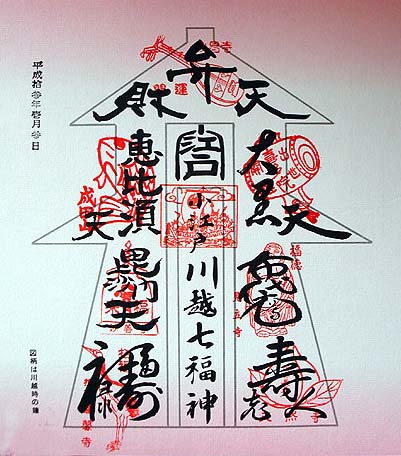 弁財天
大黒天
布袋
寿老人
小江戸川越七福神
恵比須天
毘沙門天
福禄寿
平成拾参年壱月参日
図柄は川越時の鐘
開運
出世
福徳
成田山